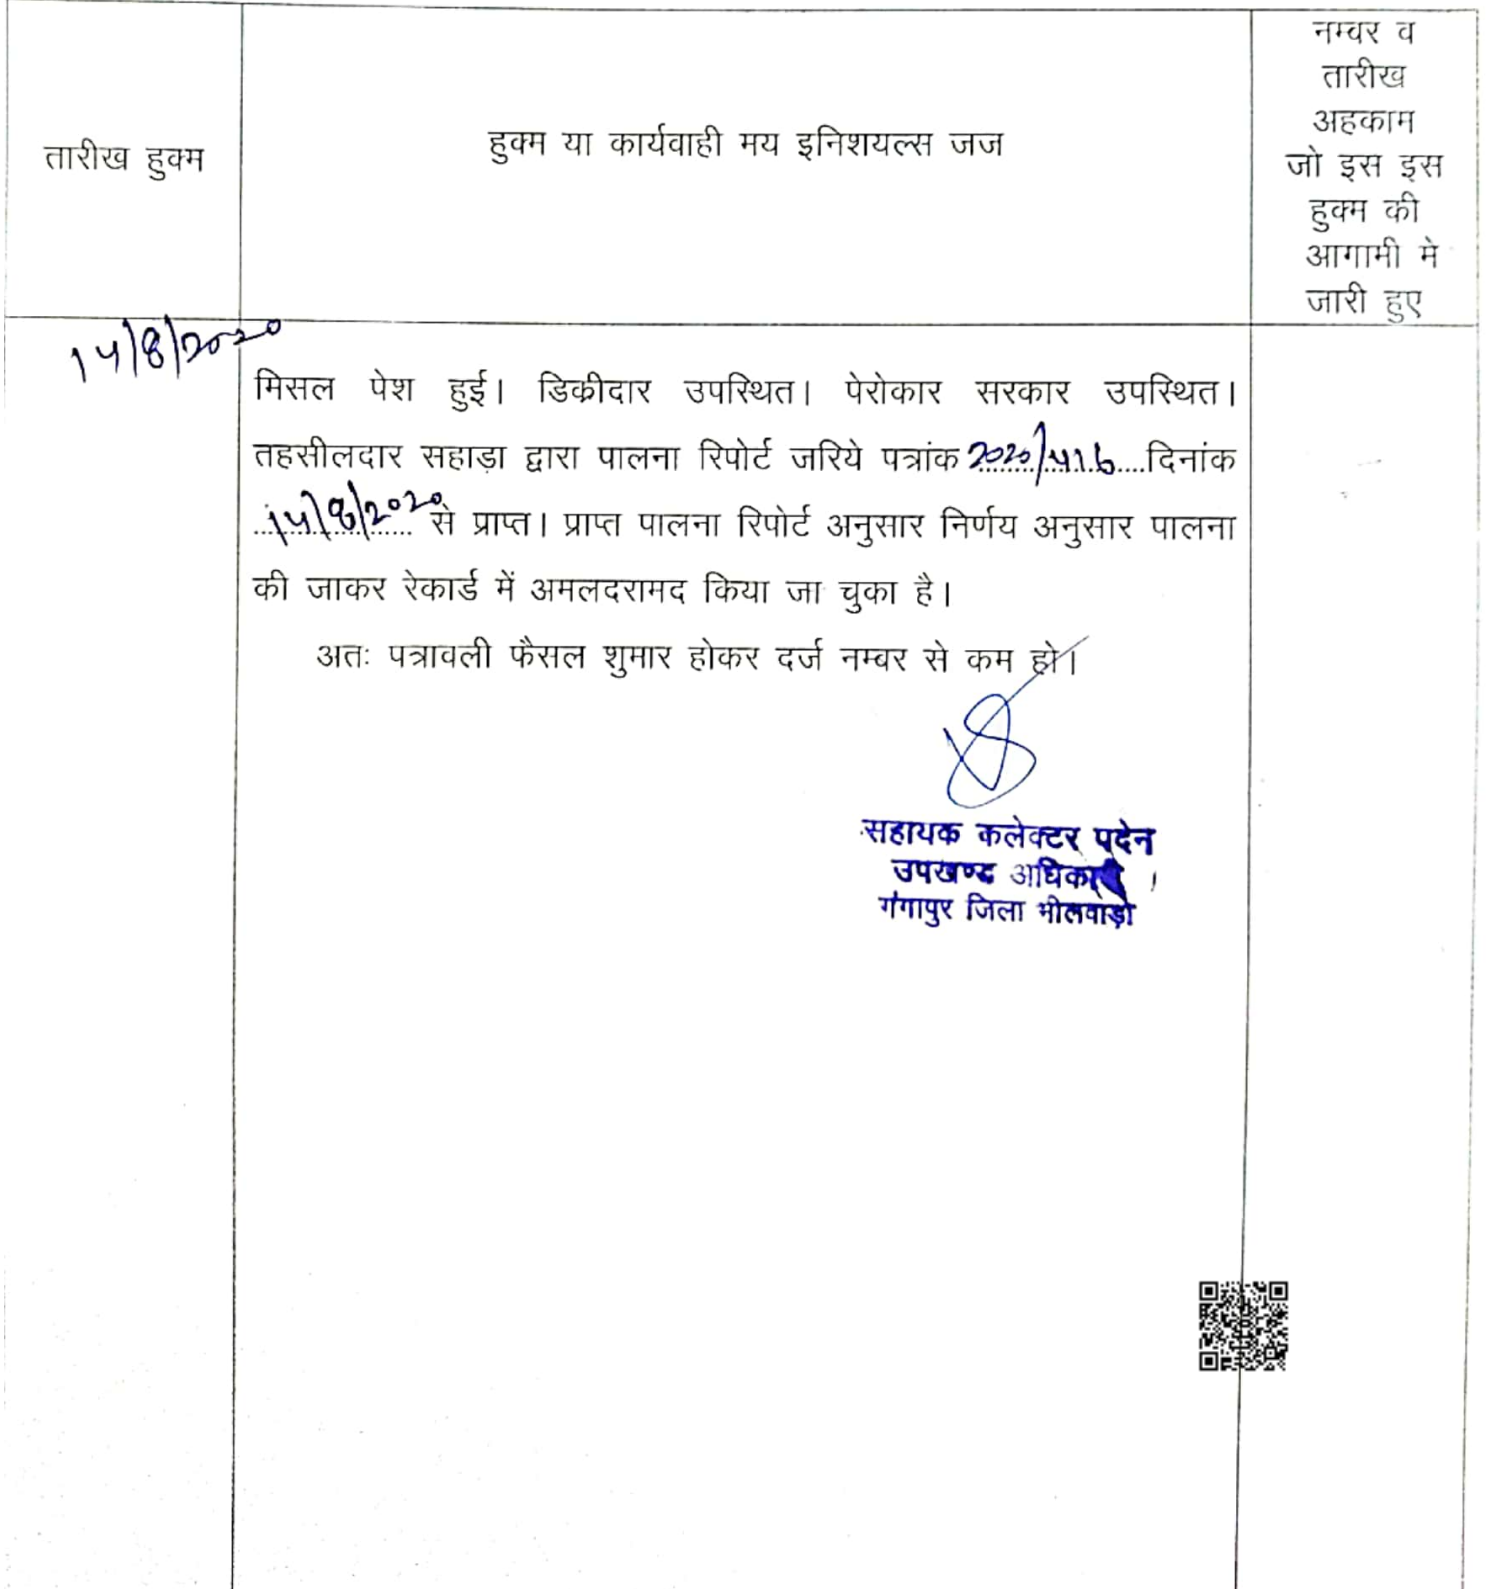 तारीख हुक्म
हुक्म या कार्यवाही मय इनिशयल्स जज
नम्वर व
तारीख
अहकाम
जो इस इस
हुक्म की
आगामी मे
जारी हुए
14/8/2020
मिसल पेश हुई। डिकीदार उपस्थित। पेरोकार सरकार उपस्थित।
तहसीलदार सहाड़ा द्वारा पालना रिपोर्ट जरिये पत्रांक 2020/416 दिनांक
14/8/2020 से प्राप्त। प्राप्त पालना रिपोर्ट अनुसार निर्णय अनुसार पालना
की जाकर रेकार्ड में अमलदरामद किया जा चुका है।
अतः पत्रावली फैसल शुमार होकर दर्ज नम्बर से कम हो।
सहायक कलेक्टर पदेन
उपखण्ड अधिकारी
गंगापुर जिला भीलवाड़ा